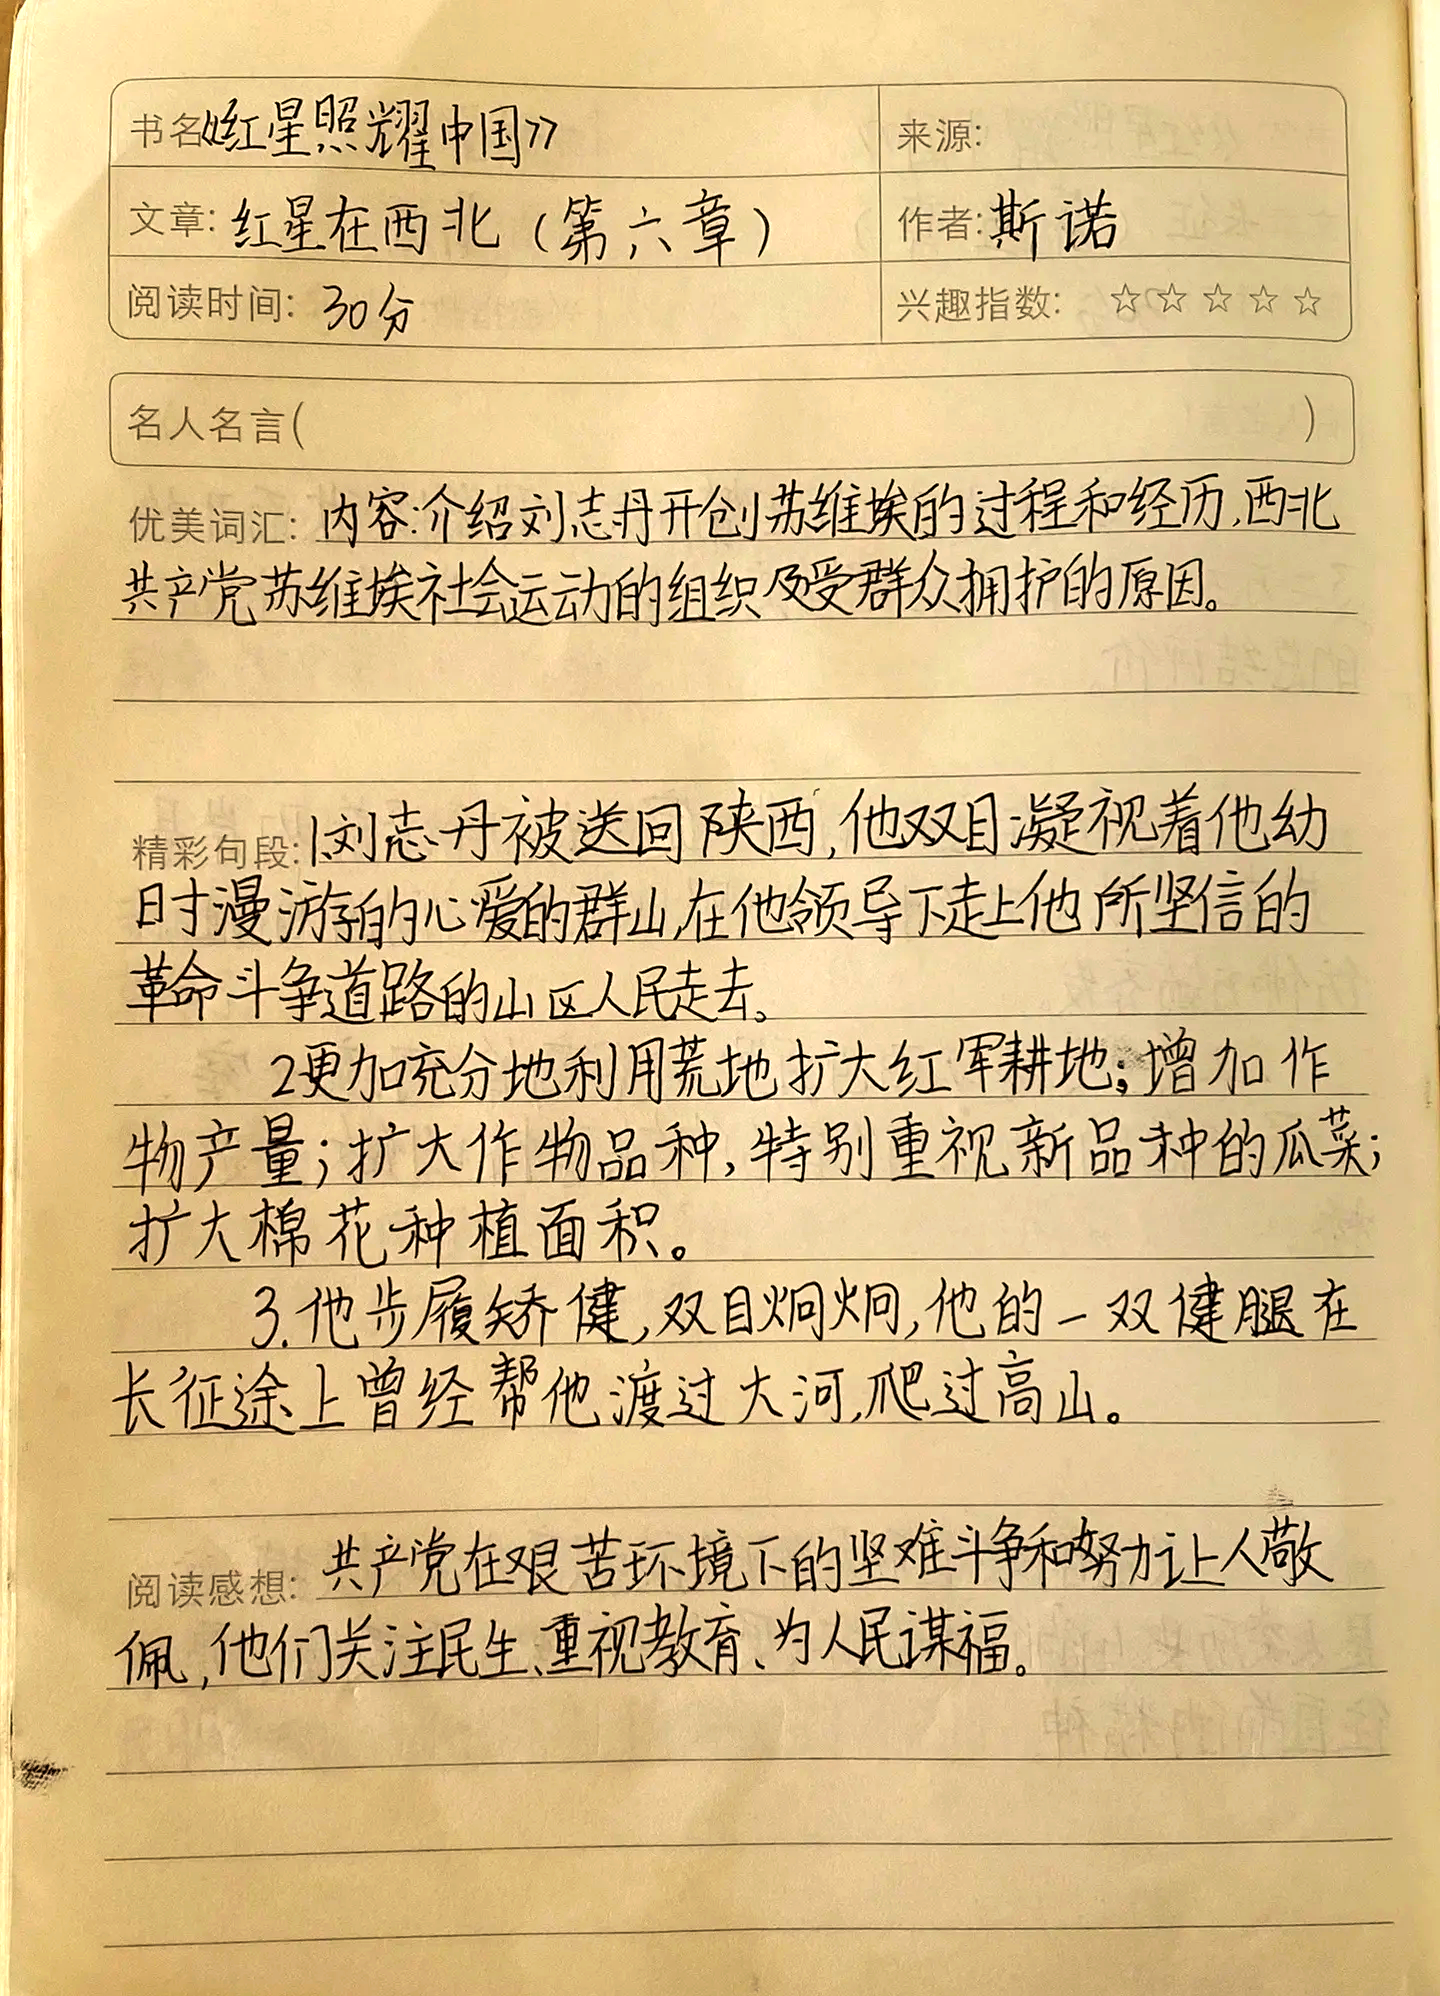 书名:《红星照耀中国》
来源:
文章: 红星在西北(第六章)
作者: 斯诺
阅读时间: 30分
兴趣指数: ☆☆☆☆☆
名人名言( )
优美词汇: 内容:介绍刘志丹开创苏维埃的过程和经历,西北
共产党苏维埃社会运动的组织及受群众拥护的原因。
精彩句段: 1.刘志丹被送回陕西,他双目凝视着他幼
时漫游的心爱的群山,在他领导下走上他所坚信的
革命斗争道路的山区人民走去。
2更加充分地利用荒地扩大红军耕地;增加作
物产量;扩大作物品种,特别重视新品种的瓜菜;
扩大棉花种植面积。
3.他步履矫健,双目炯炯,他的一双健腿在
长征途上曾经帮他渡过大河,爬过高山。
阅读感想: 共产党在艰苦环境下的坚难斗争和努力让人敬
佩,他们关注民生、重视教育、为人民谋福。